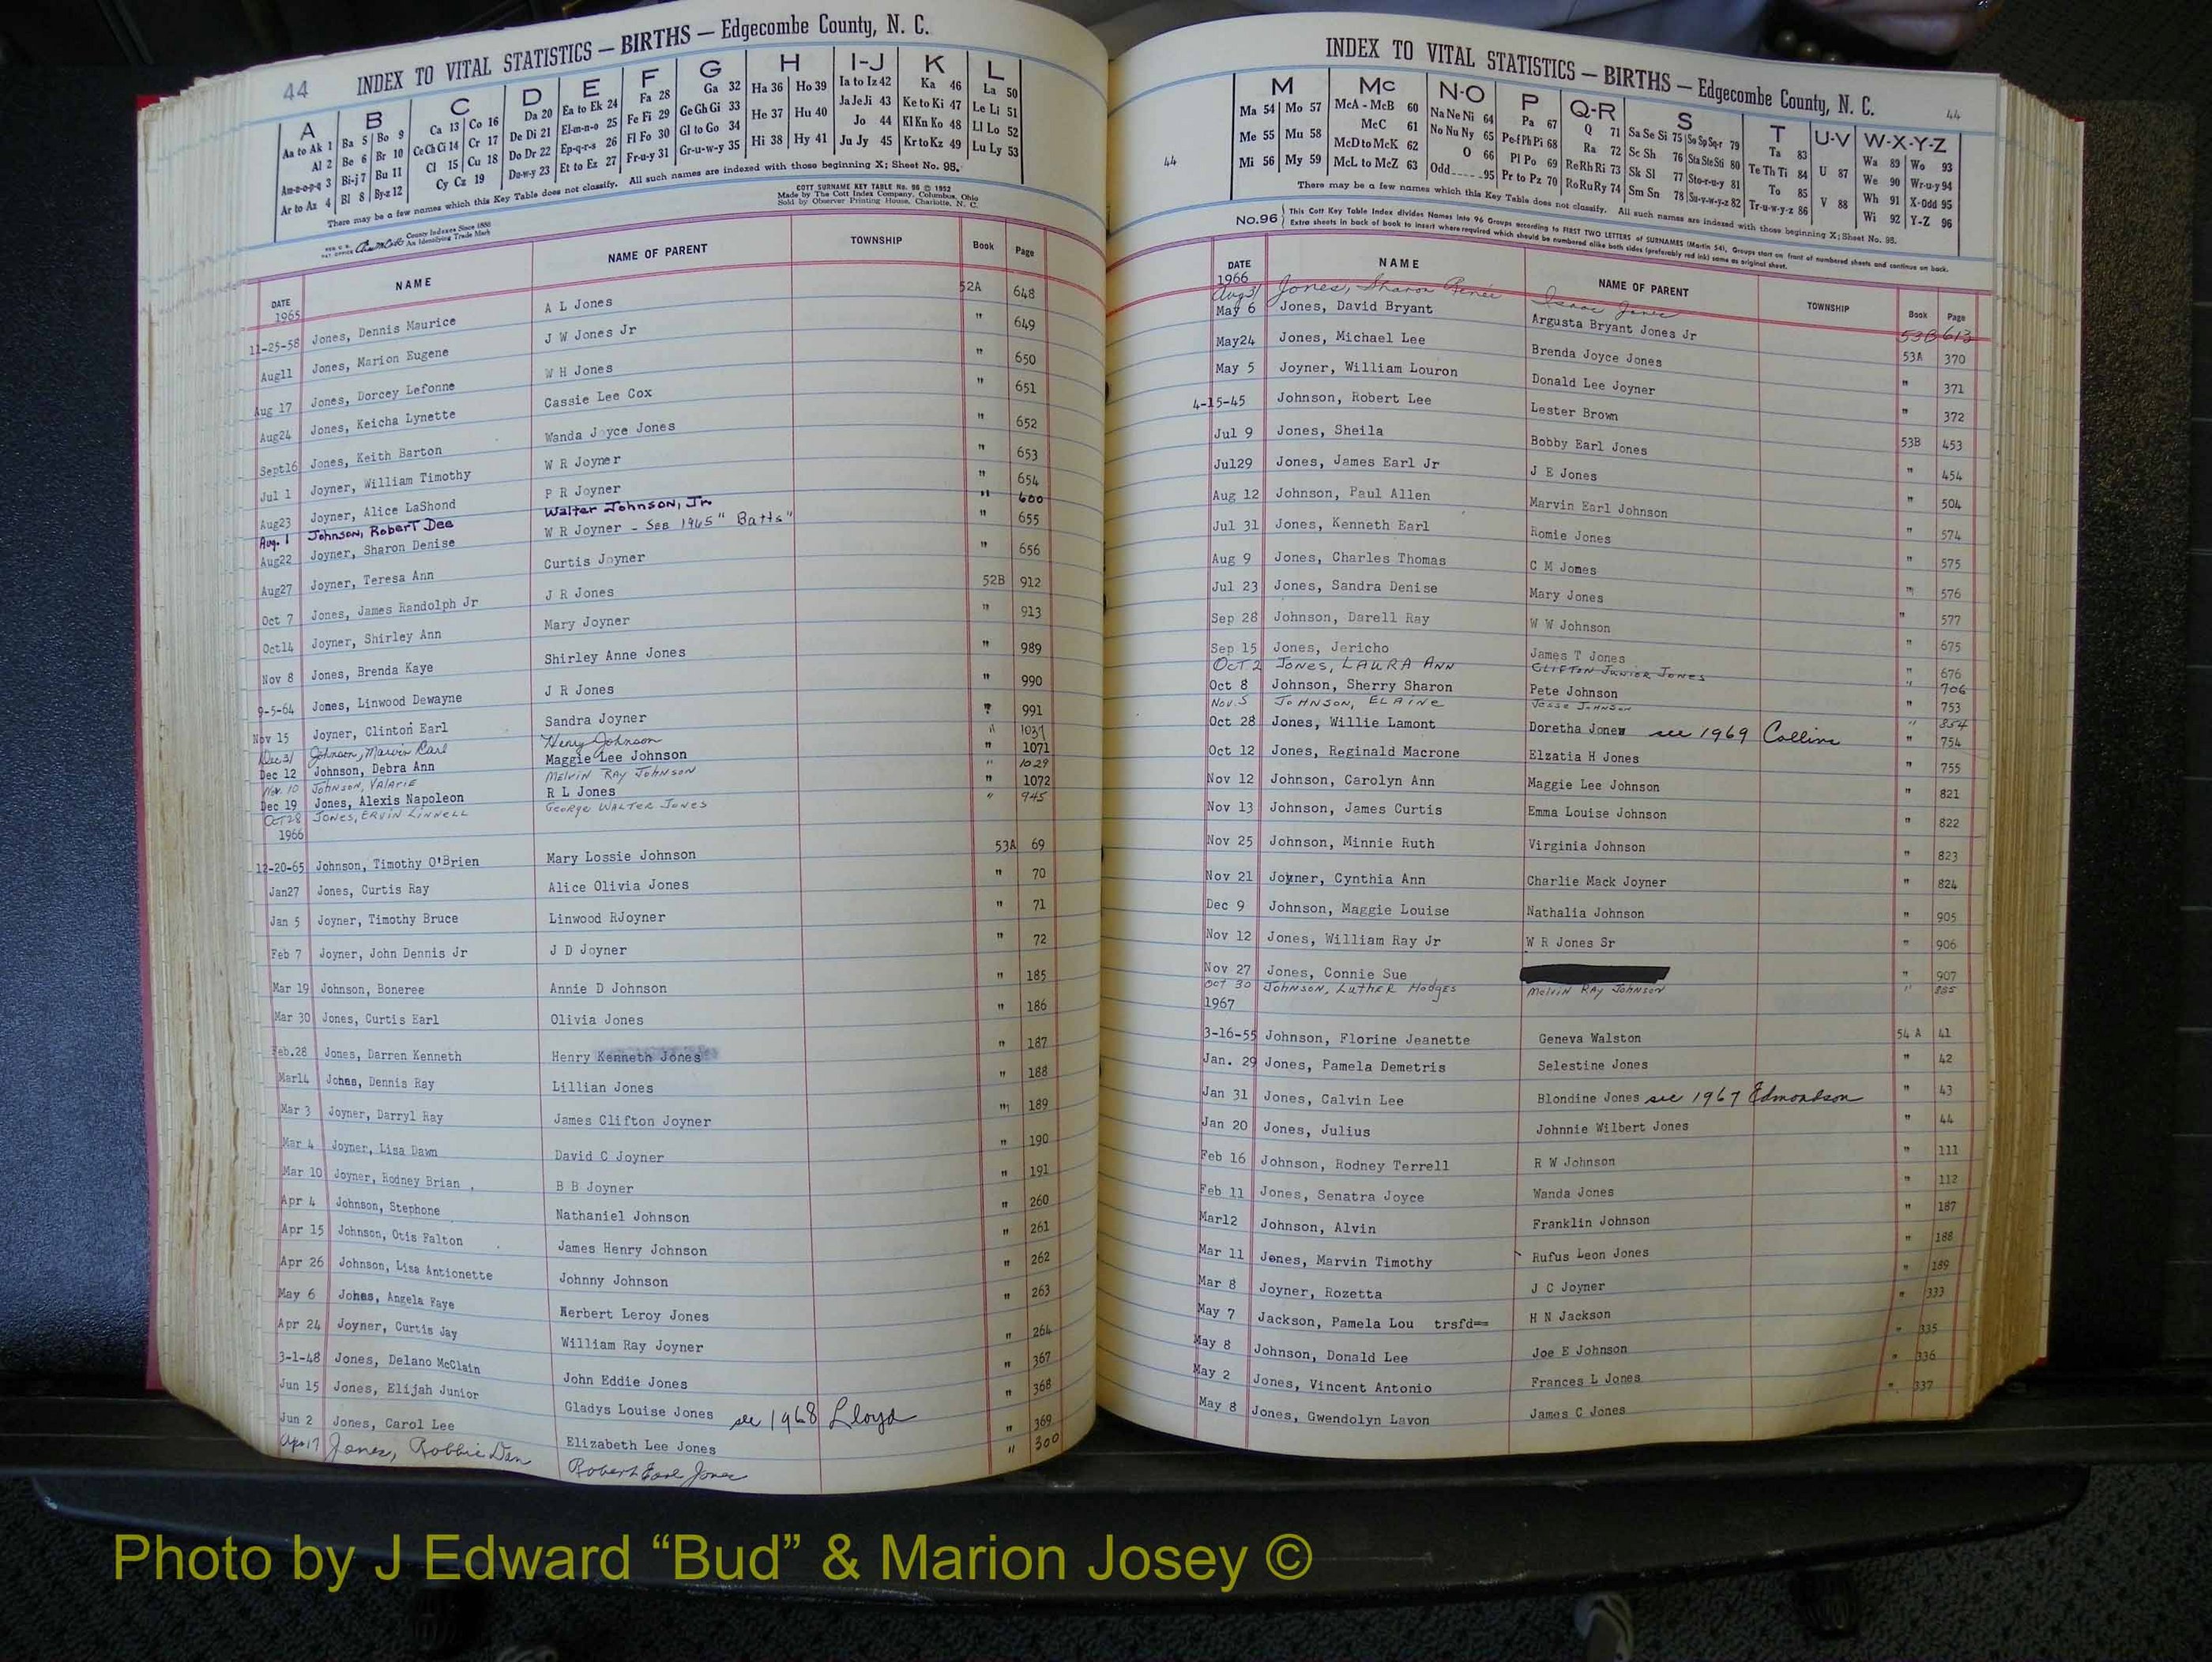 44 INDEX TO VITAL STATISTICS — BIRTHS — Edgecombe County, N. C.
A B C D E F G H I-J K L
Aa to Ak 1 Ba 5 Bo 9 Ca 13 Co 16 Da 20 Ea to Ek 24 Fa 28 Ga 32 Ha 36 Ho 39 Ia to Iz 42 Ka 46 La 50
Al 2 Be 6 Br 10 Ce Ch Ci 14 Cr 17 De Di 21 El-m-n-o 25 Fe Fi 29 Ge Gh Gi 33 He 37 Hu 40 Ja Je Ji 43 Ke to Ki 47 Le Li 51
Am-n-o-p-q 3 Bi-j 7 Bu 11 Cl 15 Cu 18 Do Dr 22 Ep-q-r-s 26 Fl Fo 30 Gl to Go 34 Hi 38 Hy 41 Jo 44 Kl Kn Ko 48 Ll Lo 52
Ar to Az 4 Bl 8 By-z 12 Cy Cz 19 Du-w-y 23 Et to Ez 27 Fr-u-y 31 Gr-u-w-y 35 Ju Jy 45 Kr to Kz 49 Lu Ly 53
There may be a few names which this Key Table does not classify. All such names are indexed with those beginning X; Sheet No. 95.
COTT SURNAME KEY TABLE No. 96 © 1952
Made by The Cott Index Company, Columbus, Ohio
Sold by Observer Printing House, Charlotte, N. C.
County Indexes Since 1888
An Identifying Trade Mark
DATE NAME NAME OF PARENT TOWNSHIP Book Page
1965
11-25-58 Jones, Dennis Maurice A L Jones 52A 648
Aug11 Jones, Marion Eugene J W Jones Jr " 649
Aug 17 Jones, Dorcey Lefonne W H Jones " 650
Aug24 Jones, Keicha Lynette Cassie Lee Cox " 651
Sept16 Jones, Keith Barton Wanda Joyce Jones " 652
Jul 1 Joyner, William Timothy W R Joyner " 653
Aug23 Joyner, Alice LaShond P R Joyner " 654
Aug. 1 Johnson, Robert Dee Walter Johnson, Jr. " 600
Aug22 Joyner, Sharon Denise W R Joyner - See 1965 "Batts" " 655
Aug27 Joyner, Teresa Ann Curtis Joyner " 656
Oct 7 Jones, James Randolph Jr J R Jones 52B 912
Oct14 Joyner, Shirley Ann Mary Joyner " 913
Nov 8 Jones, Brenda Kaye Shirley Anne Jones " 989
9-5-64 Jones, Linwood Dewayne J R Jones " 990
Nov 15 Joyner, Clinton Earl Sandra Joyner " 991
Dec 31 Johnson, Marvin Earl Henry Johnson " 1037
Dec 12 Johnson, Debra Ann Maggie Lee Johnson " 1071
Nov. 10 Johnson, Valarie Melvin Ray Johnson " 1029
Dec 19 Jones, Alexis Napoleon R L Jones " 1072
Oct 28 Jones, Ervin Linnell George Walter Jones " 945
1966
12-20-65 Johnson, Timothy O'Brien Mary Lossie Johnson 53A 69
Jan27 Jones, Curtis Ray Alice Olivia Jones " 70
Jan 5 Joyner, Timothy Bruce Linwood RJoyner " 71
Feb 7 Joyner, John Dennis Jr J D Joyner " 72
Mar 19 Johnson, Boneree Annie D Johnson " 185
Mar 30 Jones, Curtis Earl Olivia Jones " 186
Feb.28 Jones, Darren Kenneth Henry Kenneth Jones " 187
Mar14 Jones, Dennis Ray Lillian Jones " 188
Mar 3 Joyner, Darryl Ray James Clifton Joyner " 189
Mar 4 Joyner, Lisa Dawn David C Joyner " 190
Mar 10 Joyner, Rodney Brian B B Joyner " 191
Apr 4 Johnson, Stephone Nathaniel Johnson " 260
Apr 15 Johnson, Otis Falton James Henry Johnson " 261
Apr 26 Johnson, Lisa Antionette Johnny Johnson " 262
May 6 Jones, Angela Faye Herbert Leroy Jones " 263
Apr 24 Joyner, Curtis Jay William Ray Joyner " 264
3-1-48 Jones, Delano McClain John Eddie Jones " 367
Jun 15 Jones, Elijah Junior Gladys Louise Jones see 1968 Lloyd " 368
Jun 2 Jones, Carol Lee Elizabeth Lee Jones " 369
Apr 17 Jones, Robbie Dan Robert Earl Jones " 300
INDEX TO VITAL STATISTICS — BIRTHS — Edgecombe County, N. C. 44
44
M Mc N-O P Q-R S T U-V W-X-Y-Z
Ma 54 Mo 57 McA - McB 60 Na Ne Ni 64 Pa 67 Q 71 Sa Se Si 75 So Sp Sq-r 79 Ta 83 U 87 Wa 89 Wo 93
Me 55 Mu 58 McC 61 No Nu Ny 65 Pe Pf Ph Pi 68 Ra 72 Sc Sh 76 Sta Ste Sti 80 Te Th Ti 84 V 88 We 90 Wr-u-y 94
Mi 56 My 59 McD to McK 62 O 66 Pl Po 69 Re Rh Ri 73 Sk Sl 77 Sto-r-u-y 81 To 85 Wh 91 X-Odd 95
McL to McZ 63 Odd 95 Pr to Pz 70 Ro Ru Ry 74 Sm Sn 78 Su-v-w-y-z 82 Tr-u-w-y-z 86 Wi 92 Y-Z 96
There may be a few names which this Key Table does not classify. All such names are indexed with those beginning X; Sheet No. 95.
No. 96 This Cott Key Table Index divides Names into 96 Groups according to FIRST TWO LETTERS of SURNAMES (Martin 54), Groups start on front of numbered sheets and continue on back.
Extra sheets in back of book to insert where required which should be numbered alike both sides (preferably red ink) same as original sheet.
DATE NAME NAME OF PARENT TOWNSHIP Book Page
1966
Aug 31 Jones, Sharon Renée Isaac Jones 53B 613
May 6 Jones, David Bryant Argusta Bryant Jones Jr 53A 370
May24 Jones, Michael Lee Brenda Joyce Jones " 371
May 5 Joyner, William Louron Donald Lee Joyner " 372
4-15-45 Johnson, Robert Lee Lester Brown 53B 453
Jul 9 Jones, Sheila Bobby Earl Jones " 454
Jul29 Jones, James Earl Jr J E Jones " 504
Aug 12 Johnson, Paul Allen Marvin Earl Johnson " 574
Jul 31 Jones, Kenneth Earl Romie Jones " 575
Aug 9 Jones, Charles Thomas C M Jones " 576
Jul 23 Jones, Sandra Denise Mary Jones " 577
Sep 28 Johnson, Darell Ray W W Johnson " 675
Sep 15 Jones, Jericho James T Jones " 676
Oct 2 Jones, Laura Ann Clifton Junior Jones " 706
Oct 8 Johnson, Sherry Sharon Pete Johnson " 753
Nov. 5 Johnson, Elaine Jesse Johnson " 854
Oct 28 Jones, Willie Lamont Doretha Jones see 1969 Collins " 754
Oct 12 Jones, Reginald Macrone Elzatia H Jones " 755
Nov 12 Johnson, Carolyn Ann Maggie Lee Johnson " 821
Nov 13 Johnson, James Curtis Emma Louise Johnson " 822
Nov 25 Johnson, Minnie Ruth Virginia Johnson " 823
Nov 21 Joyner, Cynthia Ann Charlie Mack Joyner " 824
Dec 9 Johnson, Maggie Louise Nathalia Johnson " 905
Nov 12 Jones, William Ray Jr W R Jones Sr " 906
Nov 27 Jones, Connie Sue " 907
Oct 30 Johnson, Luther Hodges Melvin Ray Johnson "
1967
3-16-55 Johnson, Florine Jeanette Geneva Walston 54 A 41
Jan. 29 Jones, Pamela Demetris Selestine Jones " 42
Jan 31 Jones, Calvin Lee Blondine Jones see 1967 Edmondson " 43
Jan 20 Jones, Julius Johnnie Wilbert Jones " 44
Feb 16 Johnson, Rodney Terrell R W Johnson " 111
Feb 11 Jones, Senatra Joyce Wanda Jones " 112
Mar12 Johnson, Alvin Franklin Johnson " 187
Mar 11 Jones, Marvin Timothy Rufus Leon Jones " 188
Mar 8 Joyner, Rozetta J C Joyner " 189
May 7 Jackson, Pamela Lou trsfd== H N Jackson " 333
May 8 Johnson, Donald Lee Joe E Johnson " 335
May 2 Jones, Vincent Antonio Frances L Jones " 336
May 8 Jones, Gwendolyn Lavon James C Jones " 337
Photo by J Edward “Bud” & Marion Josey ©